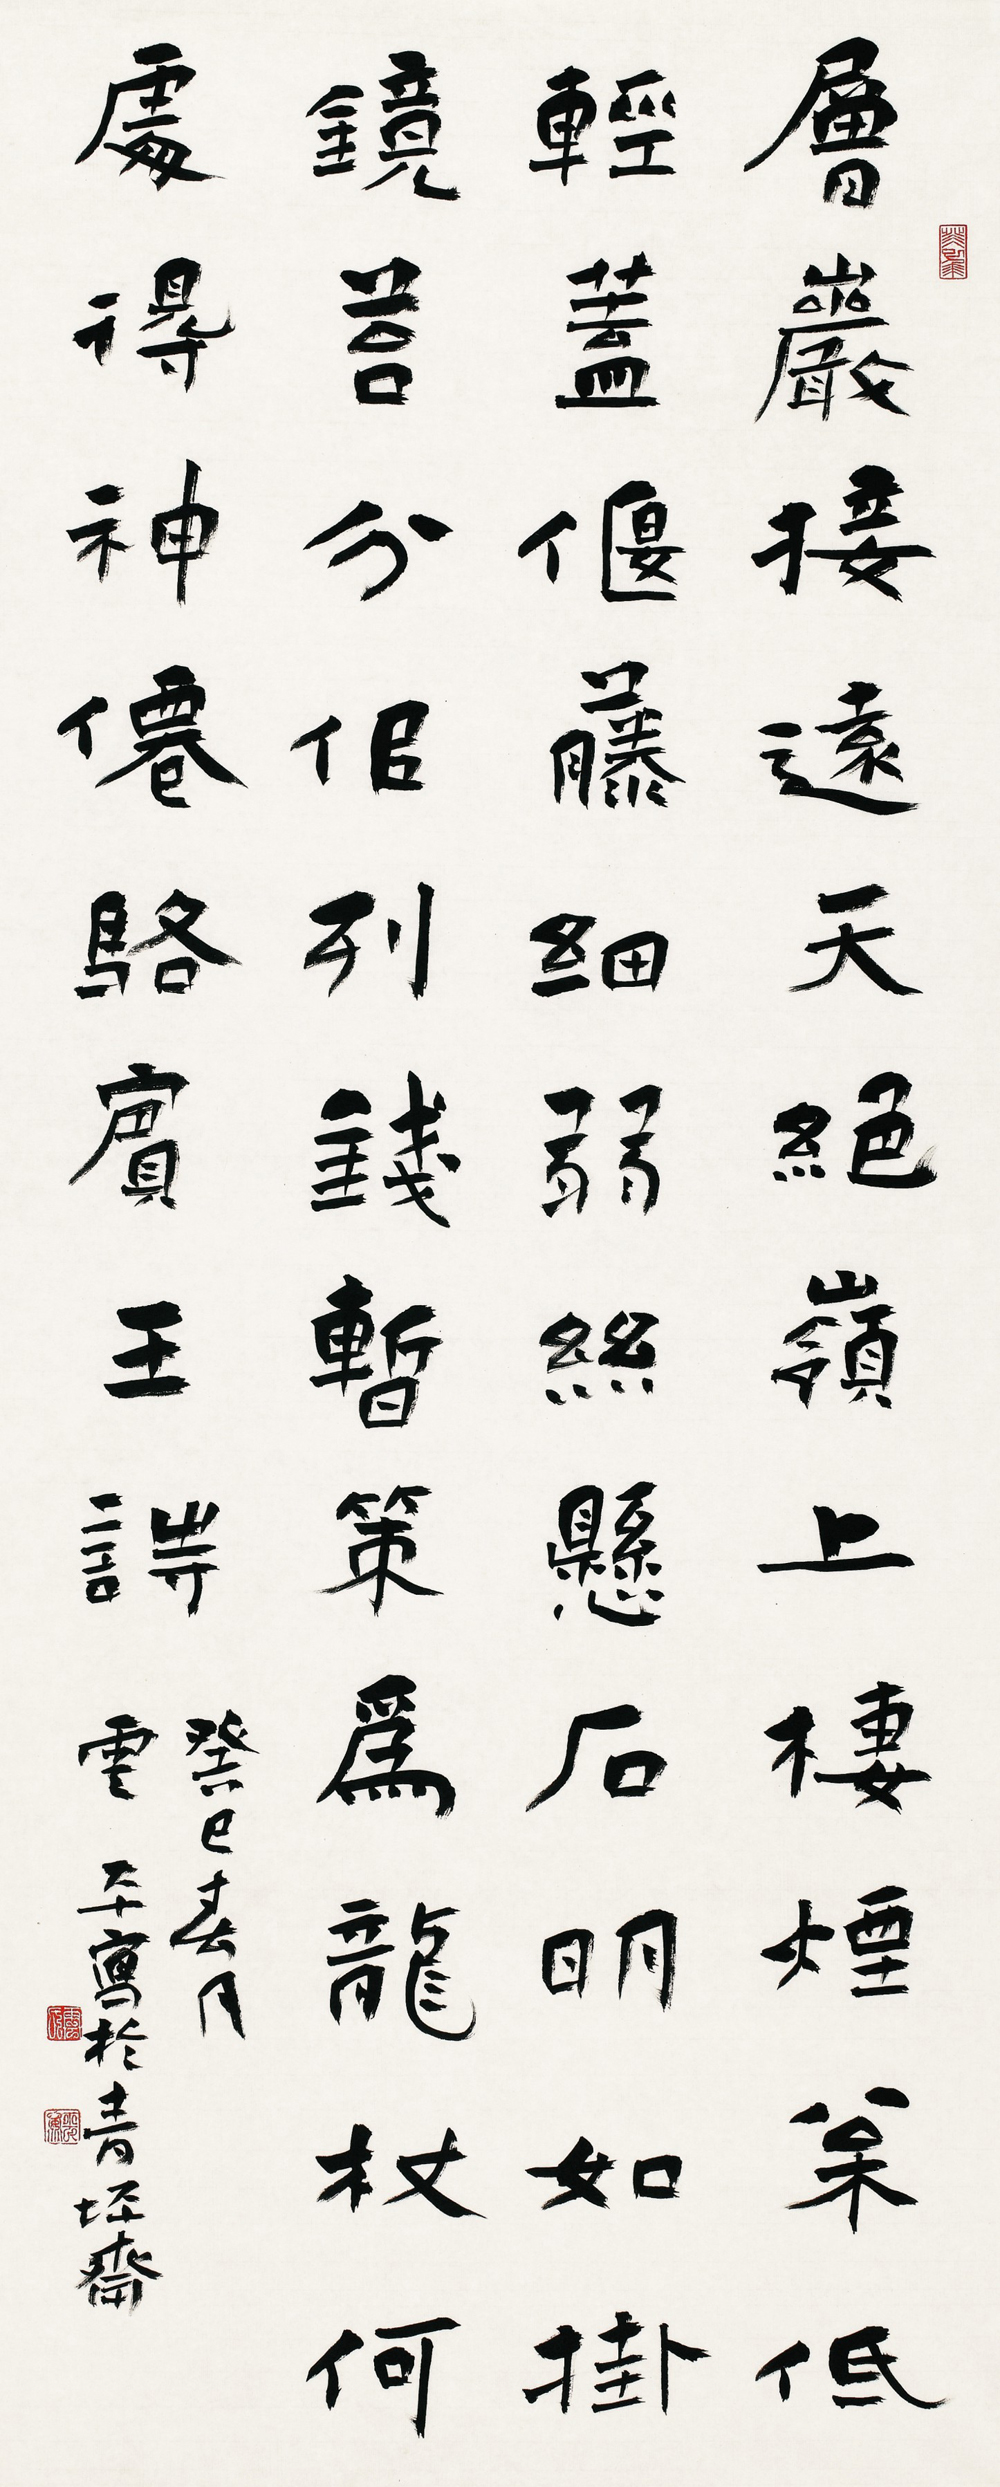 層巖接遠天絕嶺上棲煙枀低
輕蓋偃藤細弱絲懸石明如掛
鏡苔分佀列錢暫策爲龍杖何
處得神僊駱賓王詩
癸巳春月
雲平寫於青坪齋